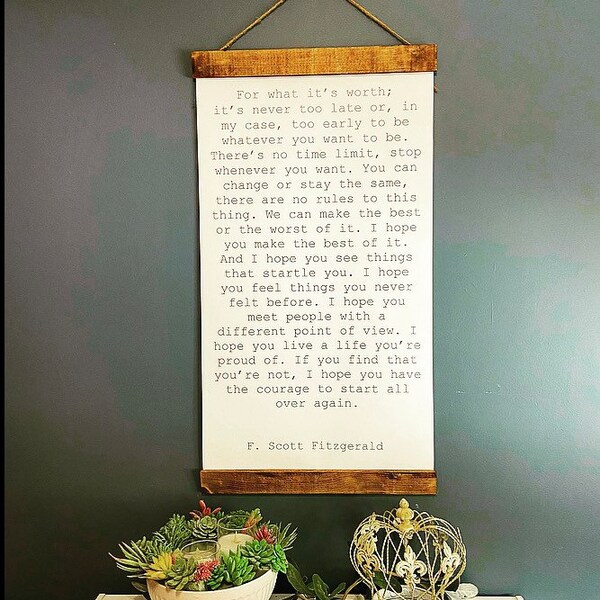 For what it's worth;
it's never too late or, in
my case, too early to be
whatever you want to be.
There's no time limit, stop
whenever you want. You can
change or stay the same,
there are no rules to this
thing. We can make the best
or the worst of it. I hope
you make the best of it.
And I hope you see things
that startle you. I hope
you feel things you never
felt before. I hope you
meet people with a
different point of view. I
hope you live a life you're
proud of. If you find that
you're not, I hope you have
the courage to start all
over again.
F. Scott Fitzgerald